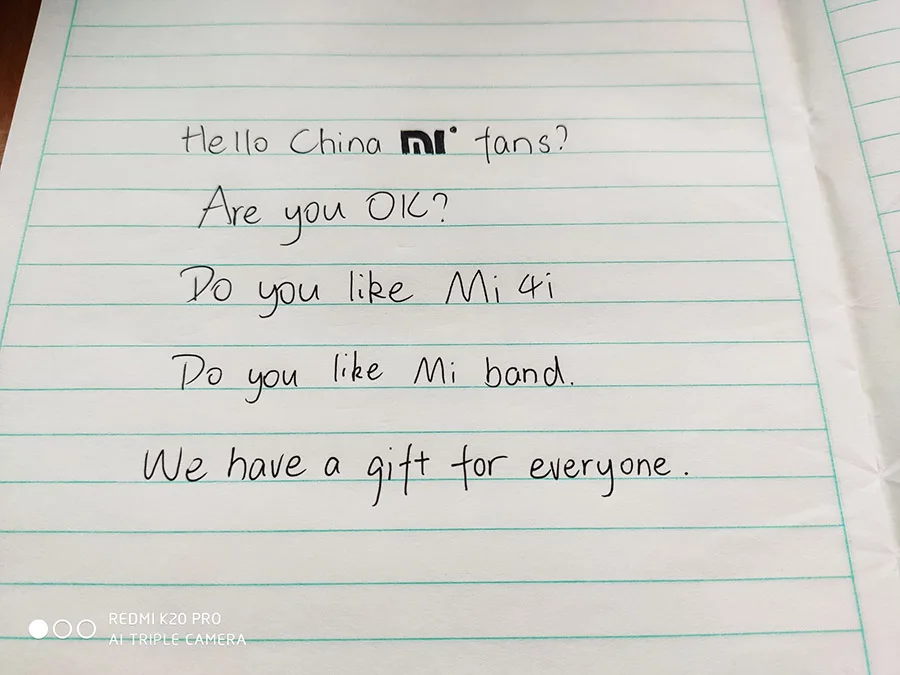 Hello China mi fans?
Are you OK?
Do you like Mi 4i
Do you like Mi band.
We have a gift for everyone.
REDMI K20 PRO
AI TRIPLE CAMERA